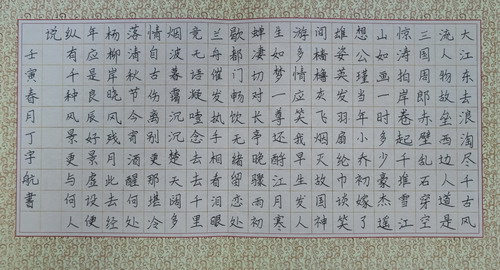 大江东去浪淘尽千古风
流人物故垒西边人道是
三国周郎赤壁乱石穿空
惊涛拍岸卷起千堆雪江
山如画一时多少豪杰遥
想公瑾当年小乔初嫁了
雄姿英发羽扇纶巾笑
间樯橹灰飞烟灭故国神
游多情应笑我早生发人
生如梦一尊还酹江月寒
蝉凄切对长亭晚骤雨初
歇都门畅饮无绪留恋处
兰舟催发执手相看泪眼
竟无语凝噎念去去千里
烟波暮霭沉沉楚天阔多
情自古伤离别更那堪冷
落清秋节今宵酒醒何处
杨柳岸晓风残月此去经
年应是良辰好景虚设便
纵有千种风情更与何人
说
壬寅春月丁宇航书